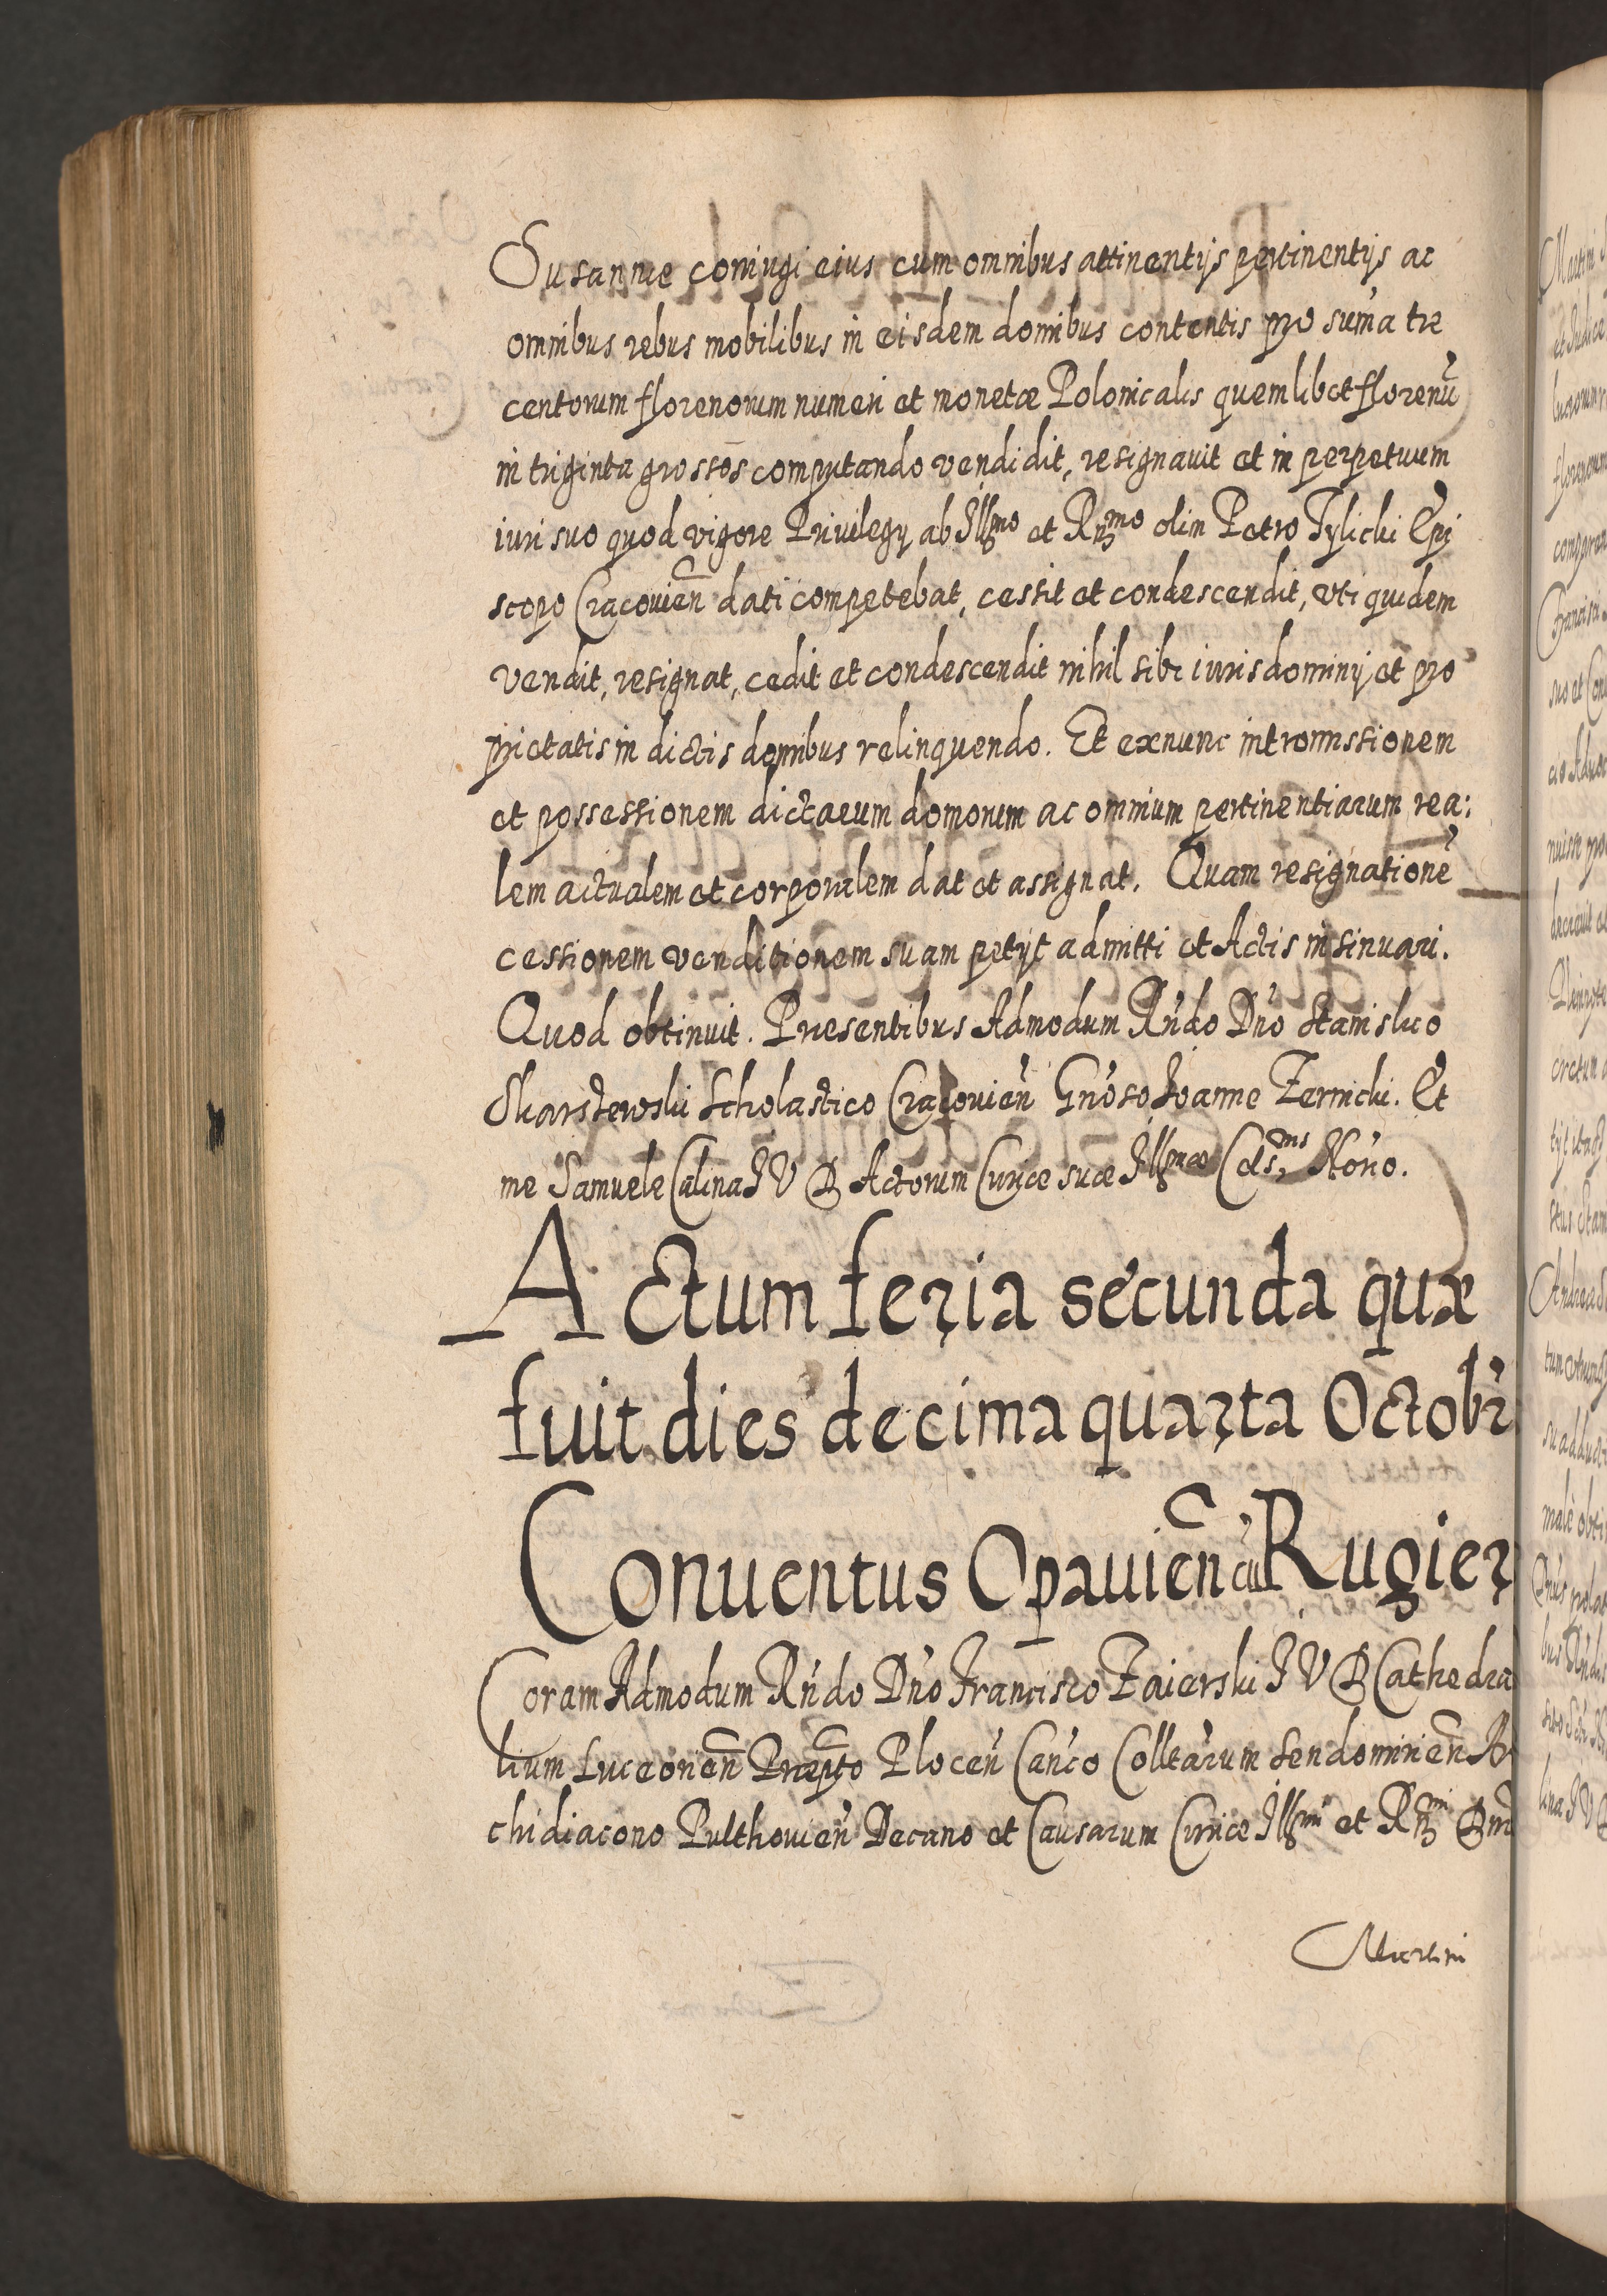 Susannæ coniugi eius cum omnibus attinentijs pertinentijs ac
omnibus rebus mobilibus in eisdem domibus contentis pro sum̃a tre
centorum florenorum numeri et monetæ Polonicalis quemlibet florenũ
in triginta grossos computando vendidit, resignauit et in perpetuum
iuri suo quod vigore Priuilegij ab Illmo et Rmo olim Petro Tylicki Epi
scopo Cracouien̄ dati competebat, cessit et condescendit, vti quidem
vendit, resignat, cedit et condescendit nihil sibi iuris dominij et pro
prietatis in dictis domibus relinquendo. Et exnunc intromissionem
et possessionem dictarum domorum ac omnium pertinentiarum rea:
lem actualem et corporalem dat et assignat. Quam resignationẽ
cessionem venditionem suam petijt admitti et Actis insinuari.
Quod obtinuit. Præsentibus Admodum Rñdo Dño Stanislao
Skarszewski Scholastico Cracouieñ Gñoso Ioanne Zernicki. Et
me Samuele Calina I V D Actorum Curiæ suæ Illmæ Cels. Noṙio.
Actum feria secunda quæ
fuit dies decima quarta Octobr
Conuentus Opauien̄ cũ Rugier
Coram Admodum Rñdo Dño Francisco Zaierski I V D Cathedra
lium Luceorien̄ Præpto Ploceñ Cañco Collẽarum Sendomirien̄ Ar
chidiacono Pulthouieñ Decano et Causarum Curiæ Illmi et Rmi Dni
Martini